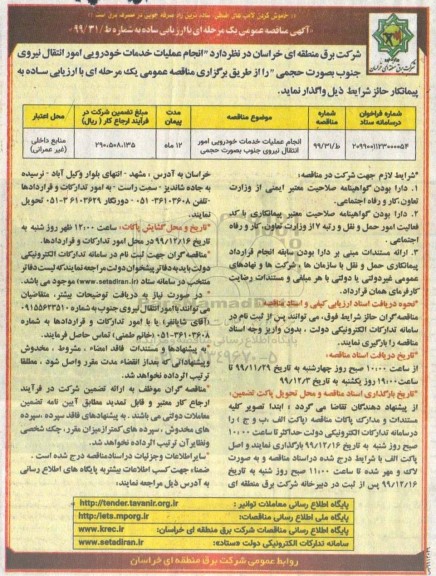 «آگهی مناقصه عمومی یک مرحله ای با ارزیابی ساده به شماره ط/۹۹/۳۱»
شرکت برق منطقه ای خراسان
شرکت برق منطقه ای خراسان در نظر دارد "انجام عملیات خدمات خودرویی امور انتقال نیروی
جنوب بصورت حجمی" را از طریق برگزاری مناقصه عمومی یک مرحله ای با ارزیابی ساده به
پیمانکار حائز شرایط ذیل واگذار نماید.
شماره فراخوان درسامانه ستاد
شماره مناقصه
موضوع مناقصه
مدت پیمان
مبلغ تضمین شرکت در فرآیند ارجاع کار (ریال)
محل اعتبار
ط/۹۹/۳۱
انجام عملیات خدمات خودرویی امور
انتقال نیروی جنوب بصورت حجمی
۱۲ ماه
۲۹۰،۵۰۸،۱۳۵
منابع داخلی
(غیر عمرانی)
شرایط لازم جهت شرکت در مناقصه:
۱. دارا بودن گواهینامه صلاحیت معتبر ایمنی از وزارت
تعاون، کار و رفاه اجتماعی.
۲. دارا بودن گواهینامه صلاحیت معتبر پیمانکاری با کد
فعالیت امور حمل و نقل و رتبه ۷ از وزارت تعاون، کار و رفاه
اجتماعی.
۳. ارائه مستندات مبنی بر دارا بودن سابقه انجام قرارداد
پیمانکاری حمل و نقل با سازمان ها، شرکت ها و نهادهای
عمومی غیردولتی یا دولتی با هر مبلغی و مستندات رضایت
کارفرمای همان قرارداد.
*نحوه دریافت اسناد ارزیابی کیفی و اسناد مناقصه:
مناقصه گران حائز شرایط فوق، می توانند پس از ثبت نام در
سامانه تدارکات الکترونیکی دولت، بدون واریز وجه اسناد
مناقصه را بارگیری نمایند.
*تاریخ دریافت اسناد مناقصه:
از ساعت ۱۰:۰۰ صبح روز چهارشنبه به تاریخ ۹۹/۱۱/۲۹ تا
ساعت ۱۹:۰۰ روز یکشنبه به تاریخ ۹۹/۱۲/۳
*تاریخ بارگذاری اسناد مناقصه و محل تحویل پاکت تضمین:
از پیشنهاد دهندگان تقاضا می گردد؛ ابتدا تصویر کلیه
مستندات و مدارک پاکات مناقصه (پاکت الف، ب و ج) را
درسامانه تدارکات الکترونیکی دولت حداکثر تا ساعت ۱۰:۰۰
صبح روز شنبه به تاریخ ۹۹/۱۲/۱۶ بارگذاری نمایند و اصل
پاکت الف با شرایط درج شده دراسناد مناقصه و به صورت
لاک و مهر شده تا ساعت ۱۱:۰۰ صبح روز شنبه به تاریخ
۹۹/۱۲/۱۶ پس از ثبت در دبیرخانه شرکت برق منطقه ای
خراسان به آدرس، مشهد - انتهای بلوار وکیل آباد - نرسیده
به جاده شاندیز - سمت راست - به امور تدارکات و قراردادها
نمایند.
*تاریخ و محل گشایش پاکات: ساعت ۱۲:۰۰ ظهر روز شنبه به
تاریخ ۹۹/۱۲/۱۶ در محل امور تدارکات و قراردادها.
*مناقصه گران جهت ثبت نام در سامانه تدارکات الکترونیکی
دولت باید به دفاتر پیشخوان دولت مراجعه نمایند که لیست دفاتر
منتخب در سامانه ستاد (www.setadiran.ir) موجود می باشد.
در صورت نیاز به دریافت توضیحات بیشتر، متقاضیان
(خانم طغمی) تماس حاصل فرمایند.
*به پیشنهادها و مستندات فاقد امضاء، مشروط، مخدوش
وپیشنهاداتی که بعداز انقضاء مدت مقرر واصل شود، مطلقا
ترتیب اثر داده نخواهد شد.
*مناقصه گران موظف به ارائه تضمین شرکت در فرآیند
ارجاع کار معتبر و قابل تمدید مطابق آیین نامه تضمین
معاملات دولتی می باشند. به پیشنهادهای فاقد سپرده، سپرده
های مخدوش، سپرده های کمتر از میزان مقرر، چک شخصی
ونظایر آن ترتیب اثر داده نخواهد شد.
*سایر اطلاعات و جزئیات دراسناد مناقصه درج شده است.
ضمنا، جهت کسب اطلاعات بیشتر به پایگاه های اطلاع رسانی
به آدرس ذیل مراجعه نمایند:
پایگاه اطلاع رسانی معاملات توانیر: http://tender.tavanir.org.ir
پایگاه اطلاع رسانی مناقصات: http://iets.mporg.ir
پایگاه اطلاع رسانی مناقصات شرکت برق منطقه ای خراسان: www.krec.ir
سامانه تدارکات الکترونیکی دولت «ستاد»: www.setadiran.ir
روابط عمومی شرکت برق منطقه ای خراسان